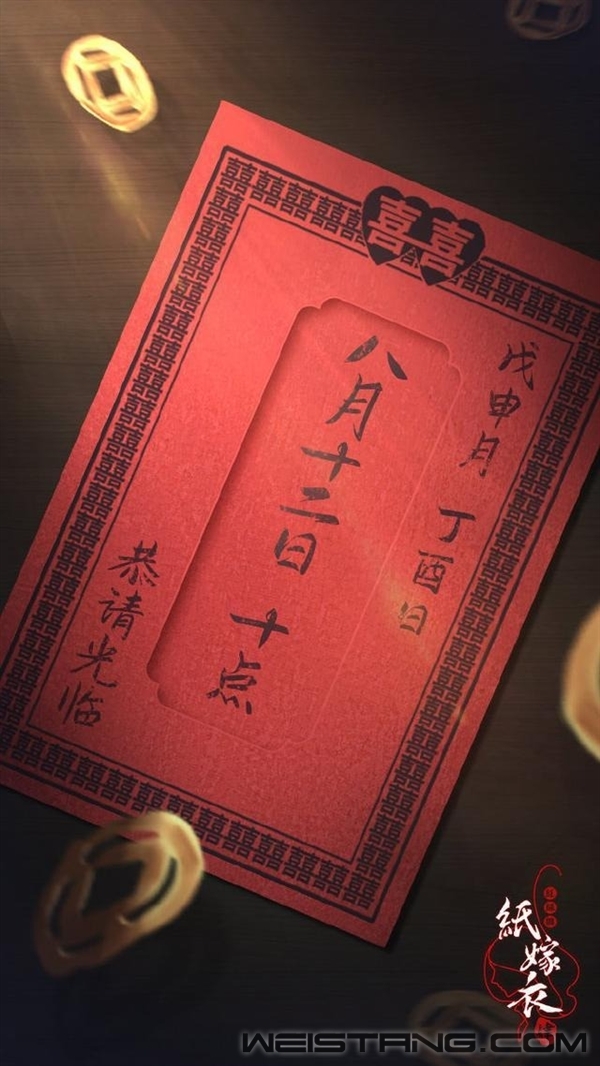 囍
戊申月 丁酉日
八月十二日 十点
恭请光临
紙嫁衣
WEISTANG.COM